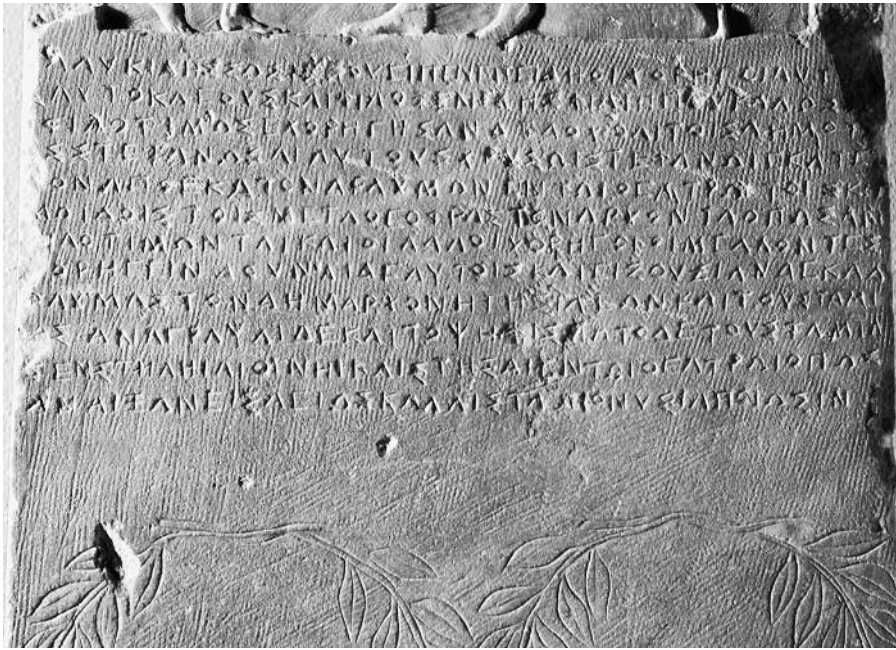 ΓΛΑΥΚΙΔΗΣΣΩΣΙΠΠΟΥΕΙΠΕΝΕΠΕΙΔΗΟΙΧΟΡΗΓΟΙΑΥΤ
ΑΥΤΟΚΛΕΟΥΣΚΑΙΦΙΛΟΞΕΝΙΔΗΣΦΙΛΙΠΠΟΥΚΑΛΩΣ
ΦΙΛΟΤΙΜΩΣΕΧΟΡΗΓΗΣΑΝΔΕΔΟΧΘΑΙΤΟΙΣΔΗΜΟΤ
ΣΣΤΕΦΑΝΩΣΑΙΑΥΤΟΥΣΧΡΥΣΩΙΣΤΕΦΑΝΩΙΕΚΑΤΕΡ
ΟΝΑΠΟΕΚΑΤΟΝΔΡΑΧΜΩΝΕΝΤΩΙΘΕΑΤΡΩΙΤΟΙΣΚΩ
ΜΩΙΔΟΙΣΤΟΙΣΜΕΤΑΘΕΟΦΡΑΣΤΟΝΑΡΧΟΝΤΑΟΠΩΣΑΝ
ΦΙΛΟΤΙΜΩΝΤΑΙΚΑΙΟΙΑΛΛΟΙΧΟΡΗΓΟΙΟΙΜΕΛΛΟΝΤΕΣ
ΧΟΡΗΓΕΙΝΔΟΥΝΑΙΔΕΑΥΤΟΙΣΕΙΣΘΥΣΙΑΝΔΕΚΑΔ
ΡΑΧΜΑΣΤΟΝΔΗΜΑΡΧΟΝΗΓΗΣΙΛΕΩΝΚΑΙΤΟΥΣΤΑΜΙΑ
ΣΑΝΑΓΡΑΨΑΙΔΕΚΑΙΤΟΨΗΦΙΣΜΑΤΟΔΕΤΟΥΣΤΑΜΙΑ
ΣΕΝΣΤΗΛΗΙΛΙΘΙΝΗΙΚΑΙΣΤΗΣΑΙΕΝΤΩΙΘΕΑΤΡΩΙΟΠΩΣ
ΑΝΑΙΞΩΝΕΙΣΑΕΙΩΣΚΑΛΛΙΣΤΑΔΙΟΝΥΣΙΑΠΟΙΩΣΙΝ